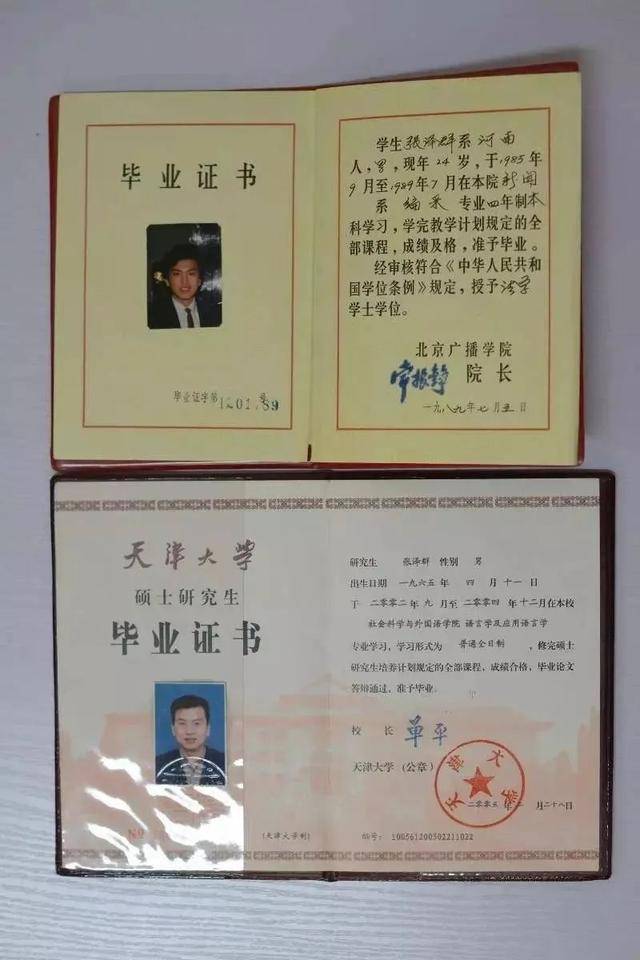 毕业证书
毕业证字第 号
学生張泽群系河南
人，男，现年24岁，于1985年
9月至1989年7月在本院新闻
系编采专业四年制本
科学习，学完教学计划规定的全
部课程，成绩及格，准予毕业。
经审核符合《中华人民共和
国学位条例》规定，授予法学
学士学位。
北京广播学院
院长
一九八九年七月五日
天津大学
硕士研究生
毕业证书
No
(天津大学制)
研究生 张泽群 性别 男
出生日期 一九六五年 四 月 十一 日
于 二〇〇二年 九 月至 二〇〇四 年 十二 月在本校
社会科学与外国语学院 语言学及应用语言学
专业学习，学习形式为 普通全日制 ，修完硕士
研究生培养计划规定的全部课程，成绩合格，毕业论文
答辩通过，准予毕业。
校 长 单平
天津大学（公章）
天津大学
二〇〇五年 月二十八日
编号： 100561200502211022